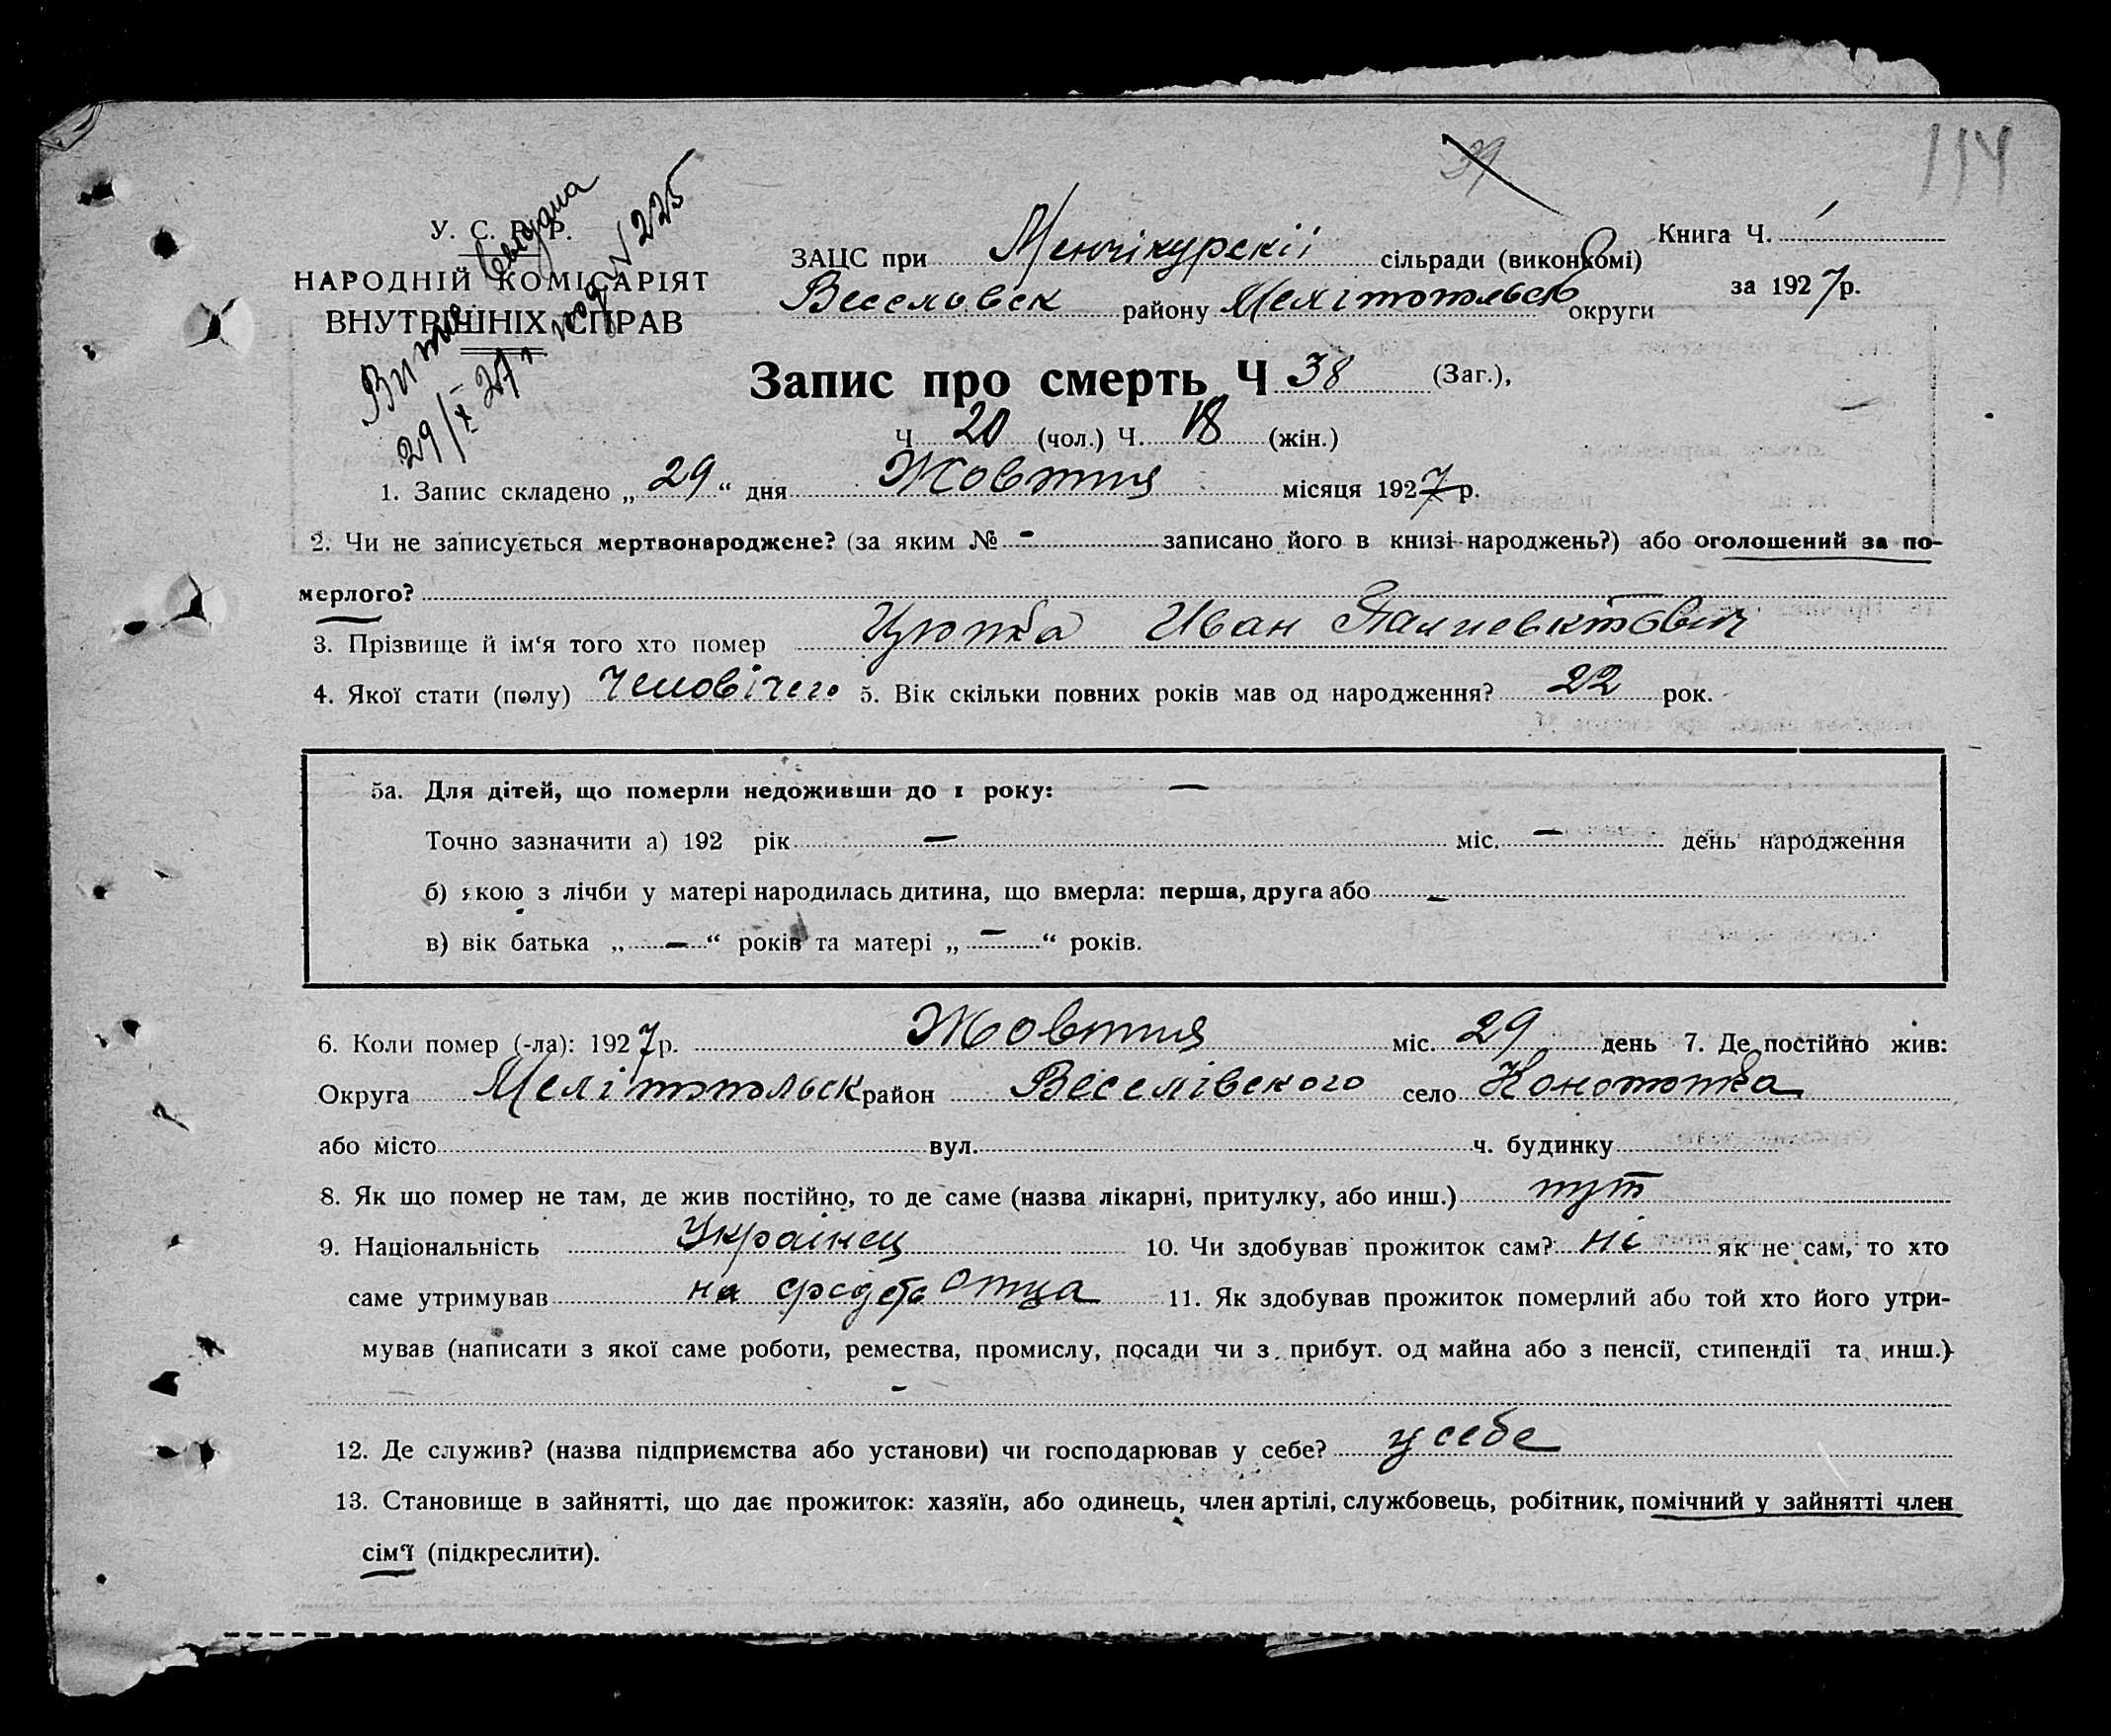 114
39
У. С. Р. Р.
НАРОДНІЙ КОМІСАРІЯТ
ВНУТРІШНІХ СПРАВ
29/X 27 под N 225
ЗАЦС при Менчікурскії сільради (виконкомі)
Книга Ч. 1
Веселовск району Мелітопольск округи
за 1927 р.
Запис про смерть Ч 38 (Заг.),
Ч 20 (чол.) Ч. 18 (жін.)
1. Запис складено „ 29 “ дня Жовтня місяця 1927 р.
2. Чи не записується мертвонароджене? (за яким № - записано його в книзі народжень?) або оголошений за по-
мерлого?
3. Прізвище й ім‘я того хто помер Иван
4. Якої стати (полу) Чоловічего 5. Вік скільки повних років мав од народження? 22 рок.
5а. Для дітей, що померли недоживши до 1 року: —
Точно зазначити а) 192 рік — міс. — день народження
б) якою з лічби у матері народилась дитина, що вмерла: перша, друга або –
в) вік батька „ — “ років та матері „ — “ років.
6. Коли помер (-ла): 1927 р. Жовтня міс. 29 день 7. Де постійно жив:
Округа Мелітопольск район Веселівского село
або місто вул. ч. будинку
8. Як що помер не там, де жив постійно, то де саме (назва лікарні, притулку, або инш.) тут
9. Національність Украінец 10. Чи здобував прожиток сам? ні як не сам, то хто
саме утримував на отца 11. Як здобував прожиток померлий або той хто його утри-
мував (написати з якої саме роботи, ремества, промислу, посади чи з прибут. од майна або з пенсії, стипендії та инш.)
-
12. Де служив? (назва підприємства або установи) чи господарював у себе? у себе
13. Становище в зайнятті, що дає прожиток: хазяїн, або одинець, член артілі, службовець, робітник, помічний у зайнятті член
сім‘ї (підкреслити).